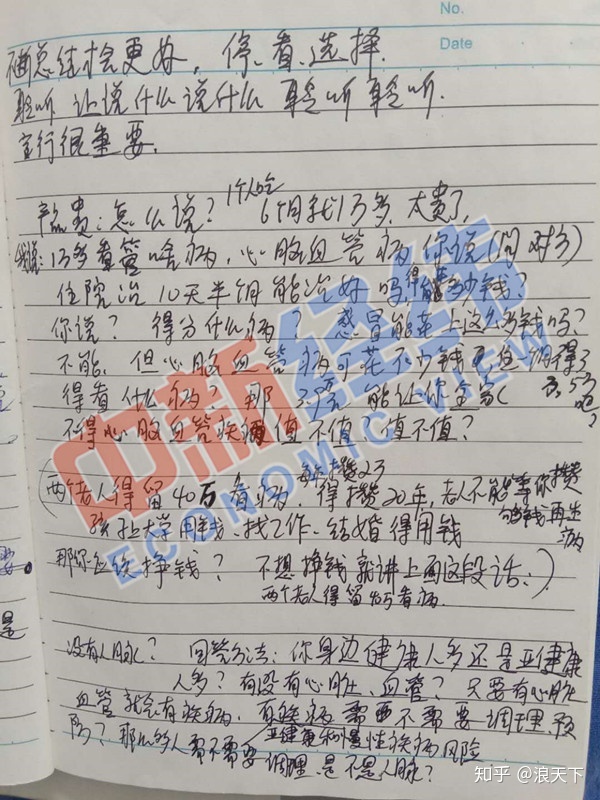 No.
Date
总结才会更好，停、看、选择.
聆听 让说什么说什么 聆听 聆听.
言行很重要.
1个人吃
产品贵：怎么说？ 6个月就1万多，太贵了，
我说：1万多看管啥病，心脑血管病你说（问对方）
住院治10天半月能治好吗，得花多少钱？
你说？ 得分什么病？ 感冒能花上这么多钱吗？
不能，但心脑血管病可花不少钱 得了
得看什么病？那 能让你全家
不得心脑血管疾病值不值？值不值？
每年攒2万
（两个老人得留40万看病，得攒20年，老人不能等你攒
够钱再生病
孩子上大学用钱、找工作、结婚得用钱
那你应该挣钱？ 不想挣钱就讲上面这段话：）
两个老人得留40万看病.
没有人脉？ 回答方法：你身边健康人多还是亚健康
人多？有没有心脏、血管？只要有心脏
血管就会有疾病，有疾病需要不需要调理、预
亚健康和慢性疾病风险
防？那么多人需不需要调理，是不是人脉？
中新经纬
ECONOMIC VIEW
知乎 @浪天下